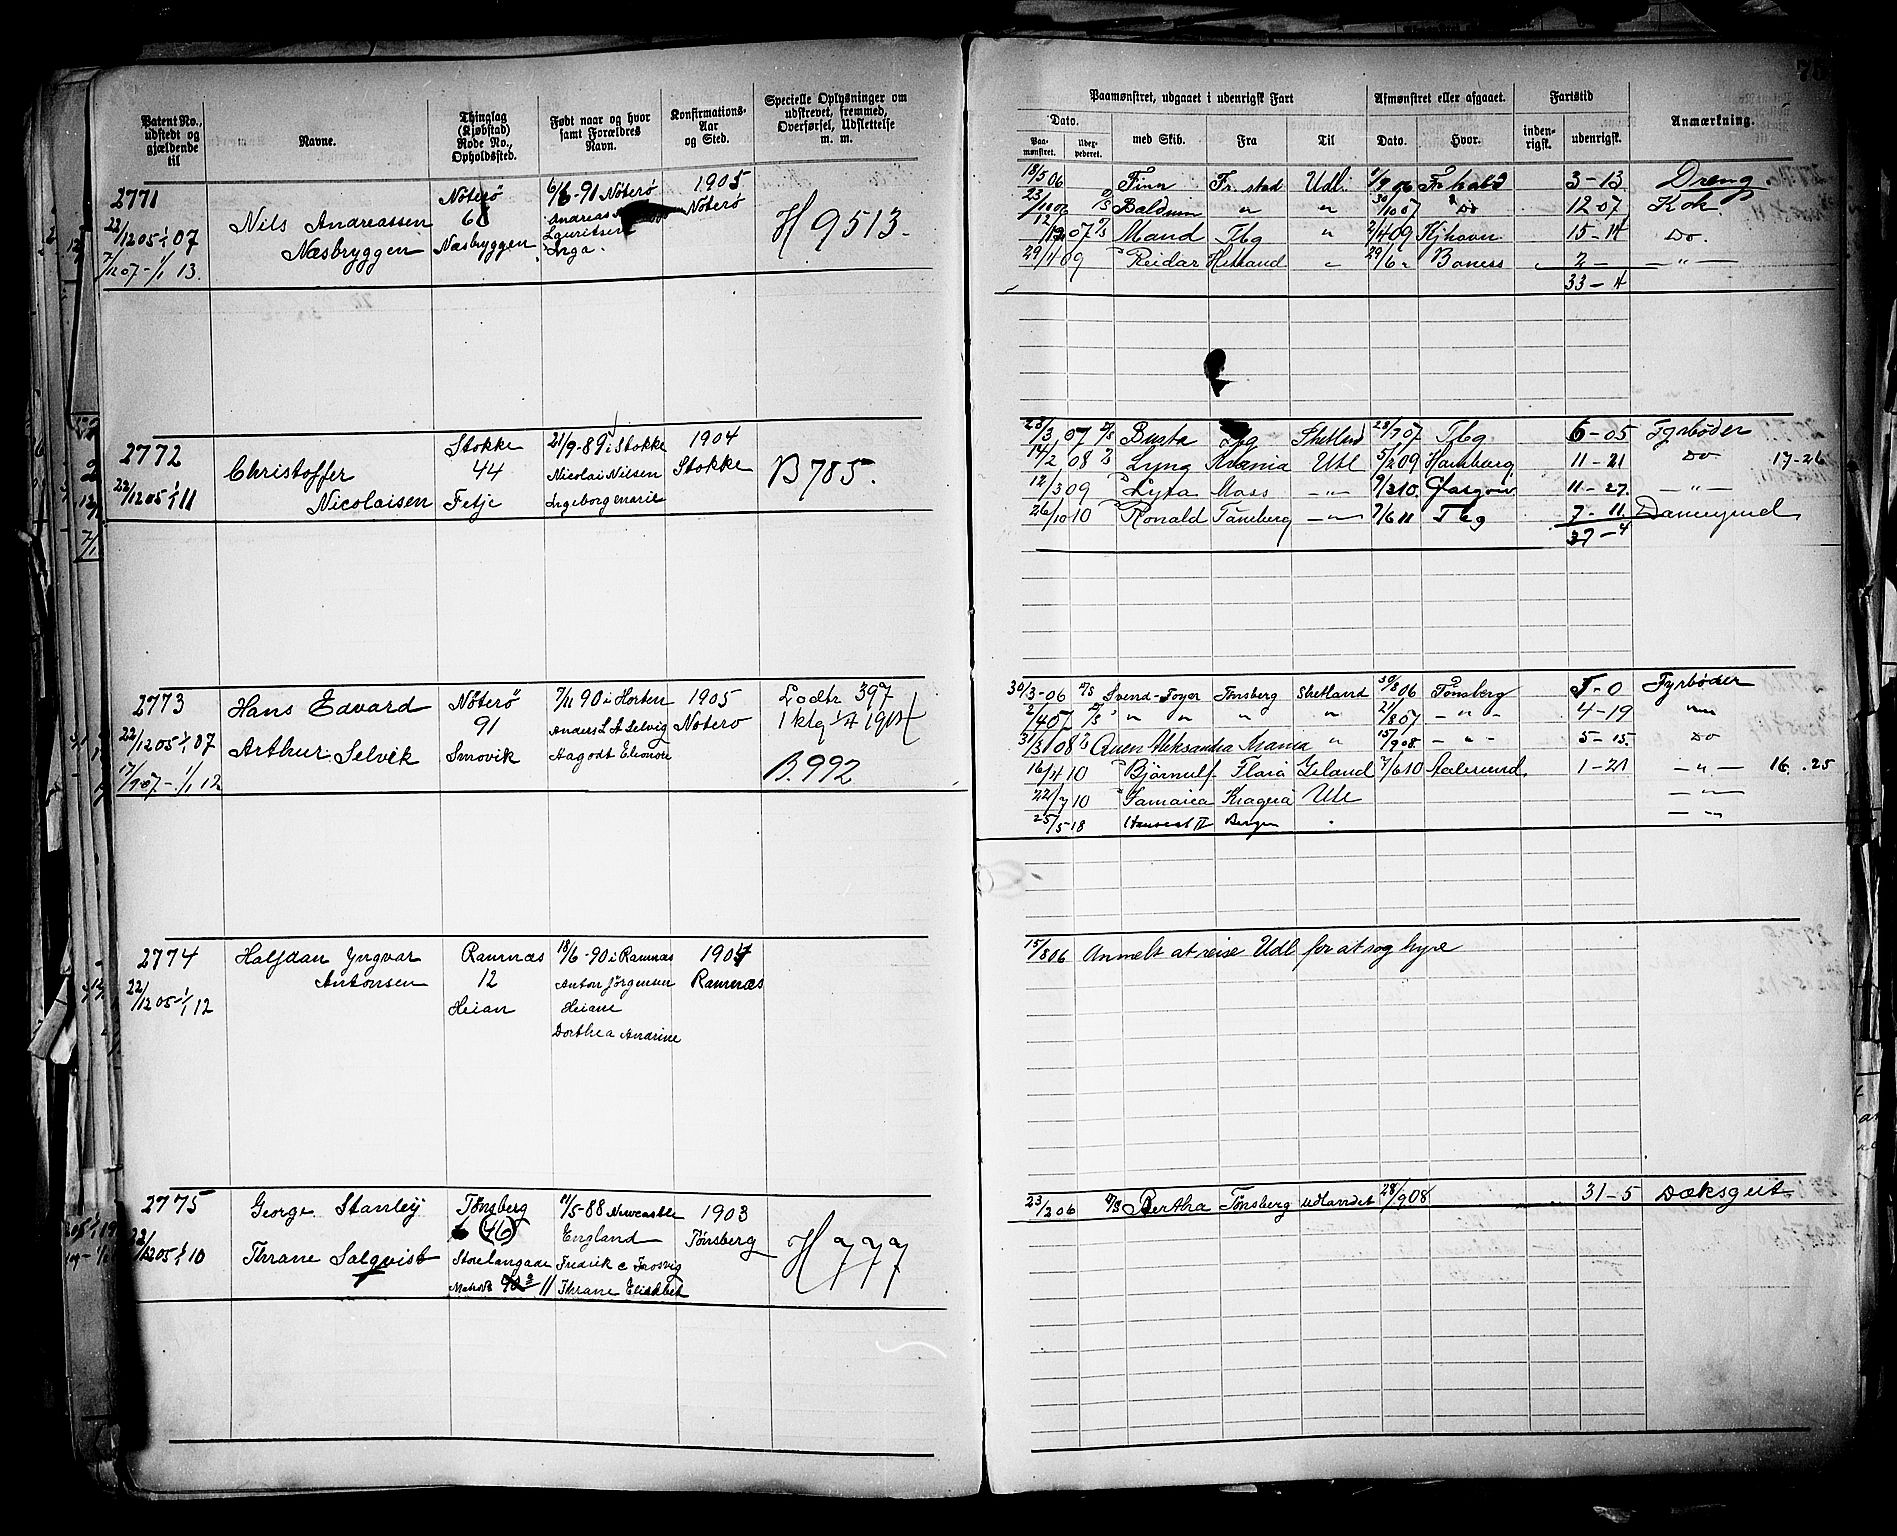 Patent No., udstedt og gjældende til
Navne.
Thinglag (Kjøbstad) Rode No., Opholdssted.
Født naar og hvor samt Forældres Navn.
Konfirmations-Aar og Sted.
Specielle Oplysninger om udstrevet, fremmed, Overførsel, Udslettelse m. m.
Paamønstret, udgaaet i udenrigsk Fart
Afmønstret eller afgaaet.
Fartstid
Anmærkning.
Dato.
Paa-mønstret.
med Skib.
Fra
Til
Dato.
Hvor.
inden-rigsk.
udenrigsk.
2771
22/12 05 - 1/1 07
7/12 07 - 1/1 13.
Nils Andreassen
Næsbryggen
Nøterø
68
Næsbryggen
6/6 - 91 Nøterø
Andreas
Lauritsen
Inga
1905
Nøterø
H 9513.
18/5 06 Finn Fr. stad Udl. 1/9 06 Fr hald 3-13 Dreng.
D/S Baldwin " " 30/10 07 Do 12-07 Kok
07 D/S Mand Tbg " 2/4 09 Kjhavn 15-14 Do.
29/4 09 " Reidar " 29/6 " Boness 2 - - " -
33-4
2772
22/12 05 1/1 11
Christoffer
Nicolaisen
Stokke
44
Fetje
21/9 - 89 i Stokke
Nicolai Nilsen
Ingeborgmarie
1904
Stokke
B 785.
23/3 07 D/S Busta Tbg Shetland 23/7 07 Tbg 6-05 Fyrbøder
14/2 08 D/S Lyng Krania Udl 5/2 09 Hamburg 11-21 Do 17-26
12/3 09 " Moss - " - 9/2 10 Glasgow 11-27. - " -
26/10 10 " Ronald Tønsberg - " - 7/6 11 Tbg 7-11
37-4
2773
22/12 05 1/1 07
17/9 07 - 1/1 12
Hans Edvard
Arthur Selvik
Nøterø
91
Smovik
7/11 90 i Horten
Anders L A Selvig
Aagodt Eleonore
1905
Nøterø
Lodtr 397
B. 992
30/3-06 D/S Svend-Foyer Tønsberg Shetland 30/8 06 Tønsberg 5-0 Fyrbøder
2/4 07 D/S " " " " 21/8 07 - " - 4-19 " "
31/3 08 D/S Queen Aleksandra Krania " 15/9 08. - " - 5-15. Do
16/4 10 " Bjørnulf Florø Island 7/6 10 Aalesund 1-21 - " - 16. .25
22/7 10 " Jamaica Kragerø Udl - " -
25/5 18 Hanseat II Bergen " - " -
2774
22/12 05 1/1 12
Halfdan Yngvar
Antonsen
Ramnæs
12
Heian
18/6 - 90 i Ramnæs
Anton Jørgensen
Heiane
Dorthea Andrine
1904
Ramnæs
15/8 06 Anmelt at reise Udl for at søg hyre
2775
22/12 05 1/1 10
George Stanley
Thrane Salqvist
Tønsberg
6 (46)
Storelangade
11
11/5 - 88 Newcastle
England
Fredrik c
Thrane Elisabet
1903
Tønsberg
H 777
23/2 06 D/S Bertha Tønsberg udlandet 28/9 08 31-5 Dæksgut